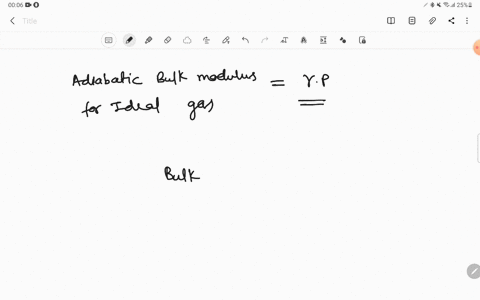 00:06 25%
Title
Adiabatic Bulk modulus = γ.P
for Ideal gas
Bulk